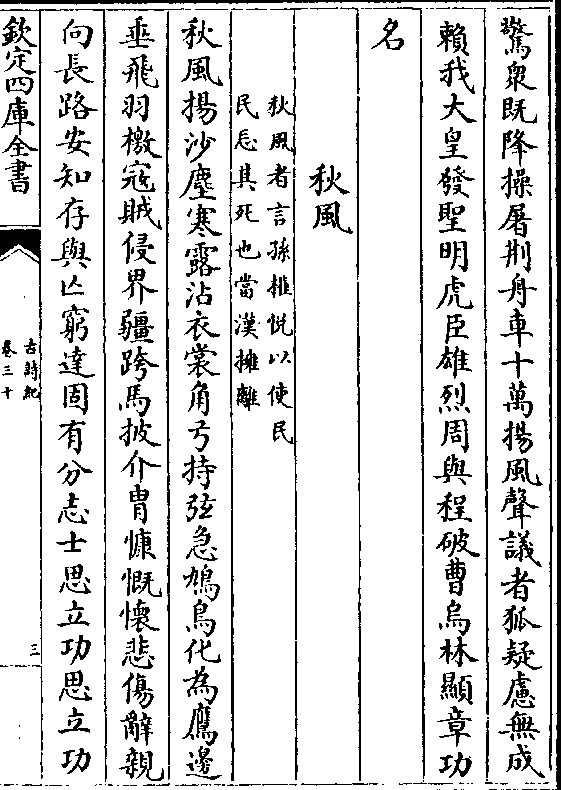 驚衆既降操屠荆舟車十萬揚風聲議者狐疑慮無成
賴我大皇發聖明虎臣雄烈周與程破曹烏林顯章功
名
秋風
秋風者言孫權恱以使民
民忘其死也當漢擁離
秋風揚沙塵寒露沾衣裳角弓持弦急鳩鳥化為鷹邊
垂飛羽檄寇賊侵界疆跨馬披介胄慷慨懷悲傷辭親
向長路安知存與亡窮達固有分志士思立功思立功
欽定四庫全書
古詩紀
卷三十
三